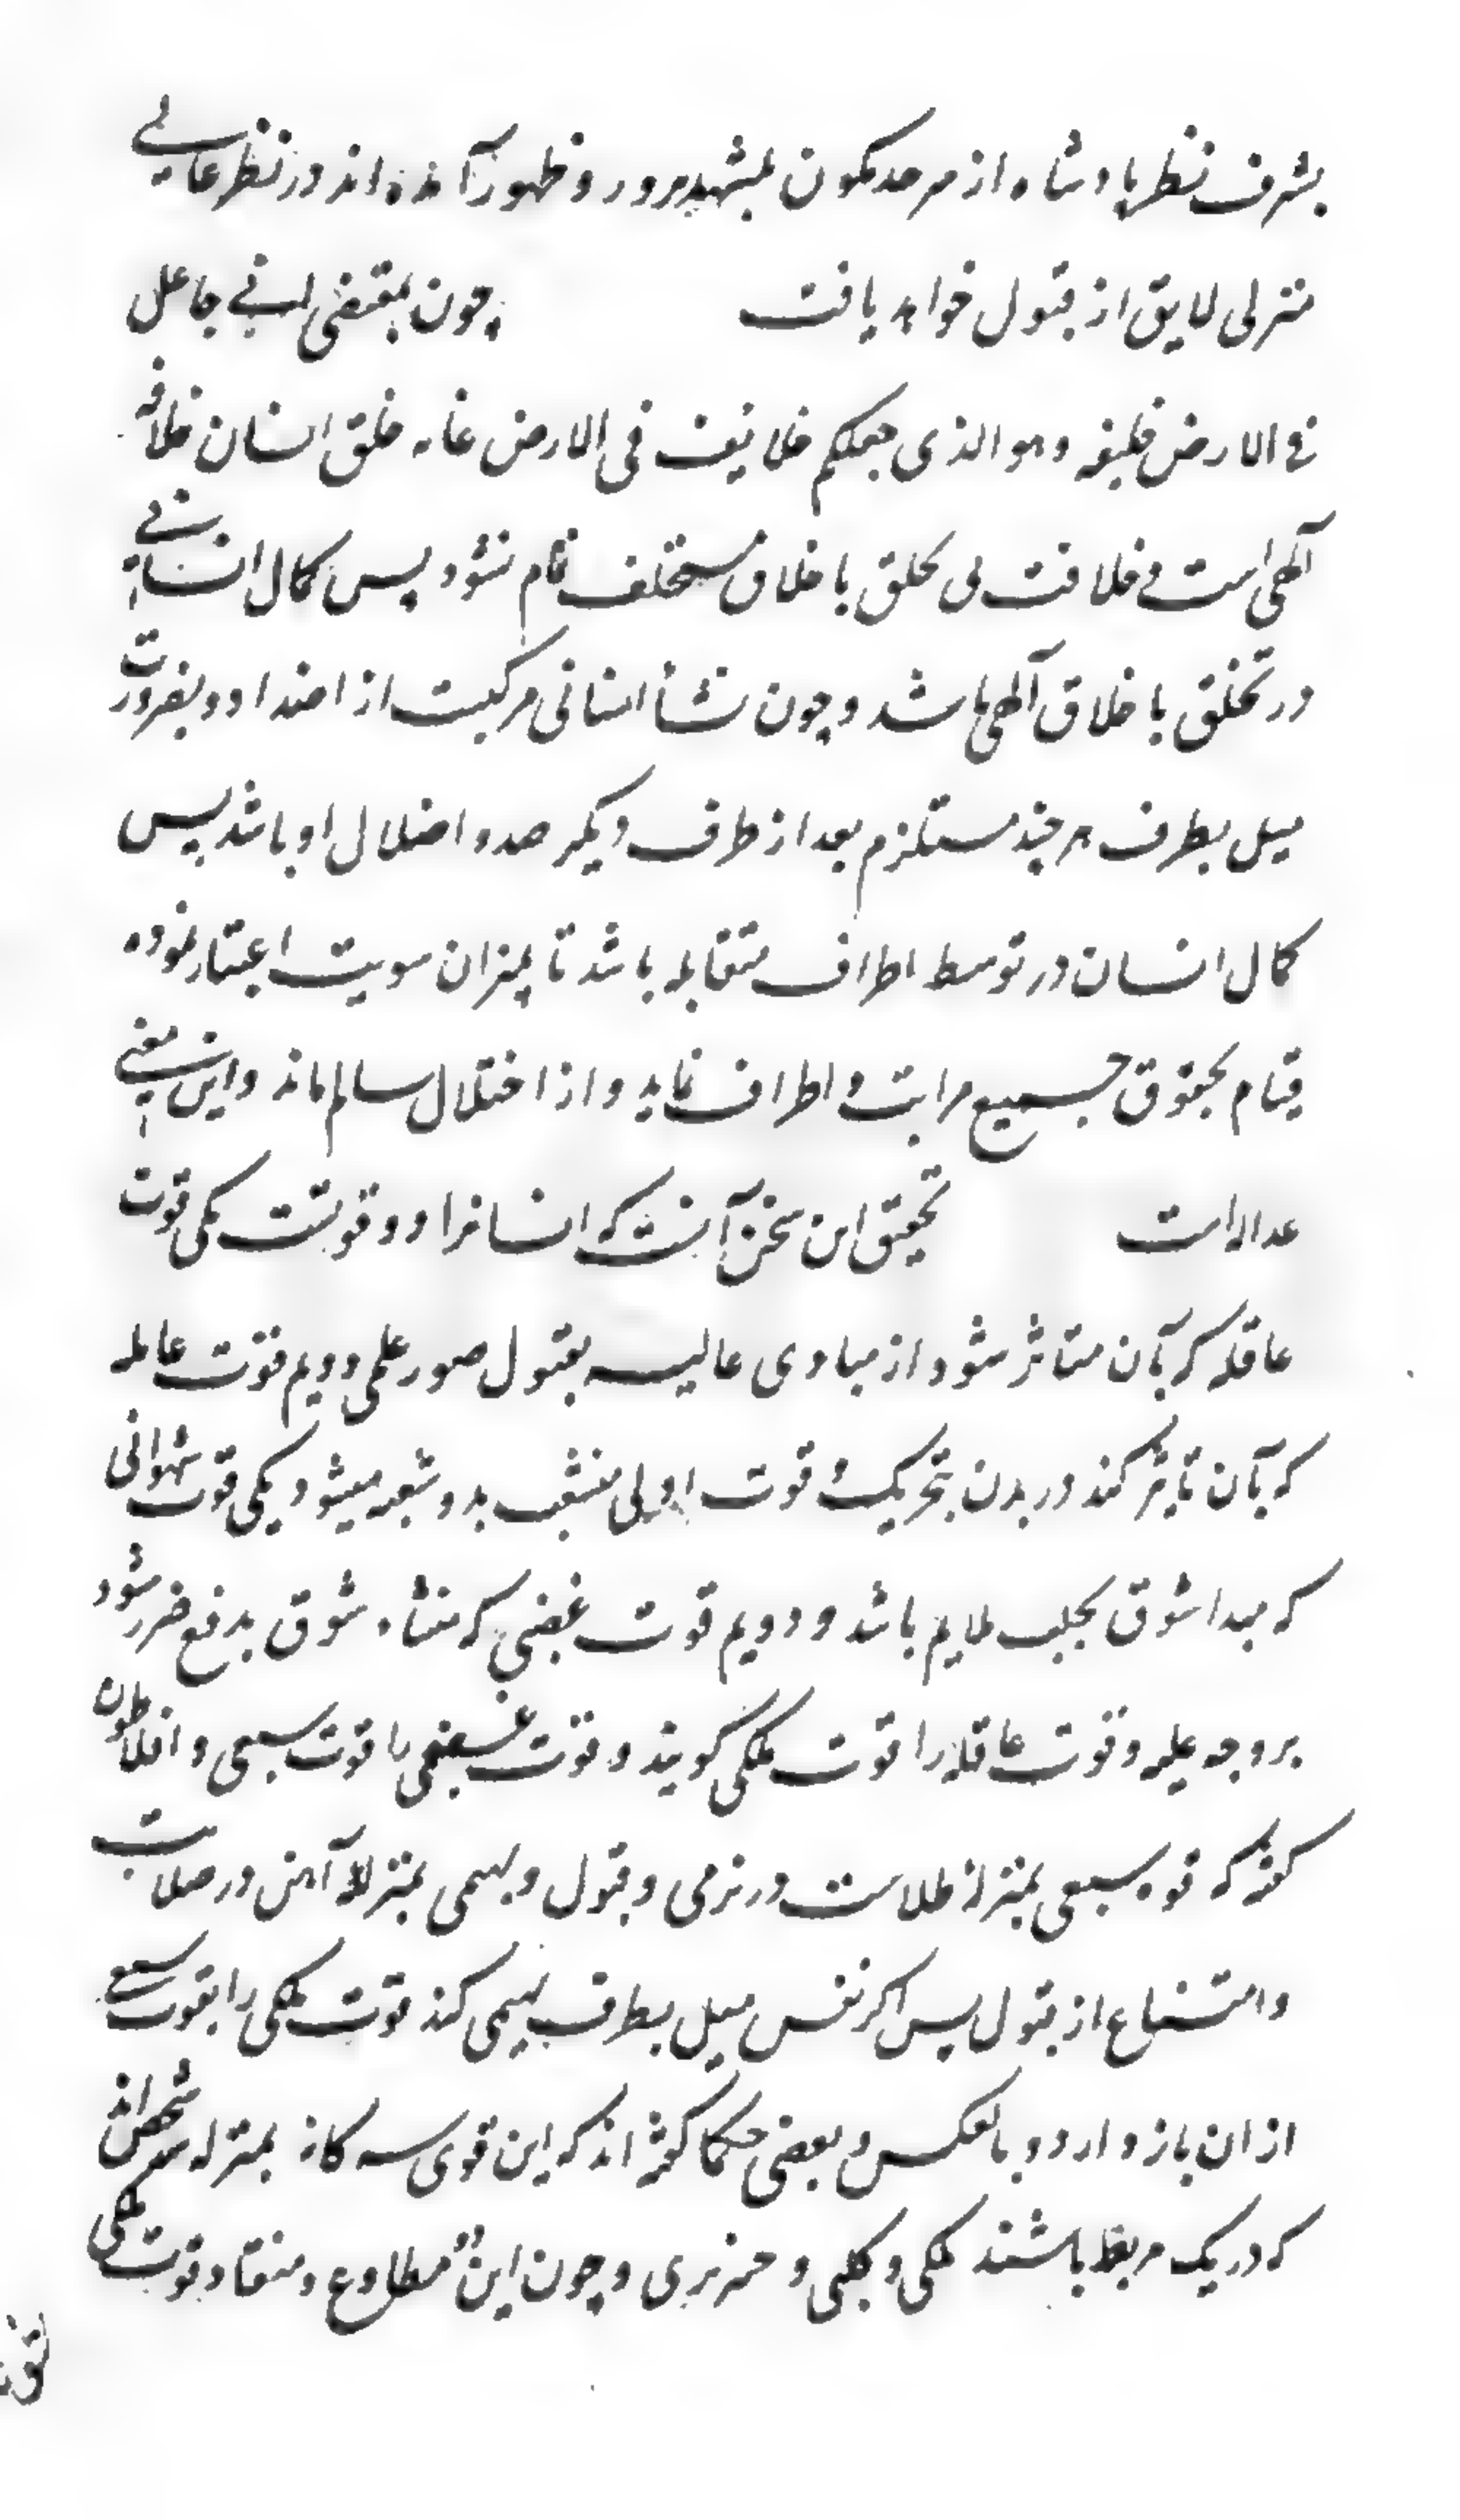 بشرف نظر پادشاه از سرحد کمون بمشهد بروز و ظهور آمده‌اند در نظر عالی
منزلی لایق از قبول خواهد یافت چون بمقتضی انی جاعل
فی الارض خلیفه و هو الذی جعلکم خلایف فی الارض غایه خلق انسان خلافه
آلهی است و خلافت بی تخلق باخلاق مستخلف تمام نشود پس کمال انسانی
در تخلق باخلاق آلهی باشد و چون نشأ انسانی مرکبست از اضداد و بضرورت
میل بطرف هر چند مستلزم بعد از طرف دیگر صد و اضلال او باشد پس
کمال انسان در توسط اطراف متقابله باشد تا بمیزان سویت اعتبار نموده
قیام بحقوق جمیع مراتب و اطراف نماید و از اختلال سالم ماند و این معنی
عداله است تحقیق این سخن آنست که انسانرا دو قوتست یکی قوت
عاقله که بآن متاثر شود از مبادی عالیه بقبول صور علمی دویم قوت عامله
که بآن تاثیر کند در بدن بتحریک و قوت اولی منشعب بدو شعبه میشود یکی قوت شهوانی
که مبدا شوق بجلب ملایم باشد و دویم قوت غضبی که منشاء شوق بدفع ضرر شود
بر وجه علیه و قوت عاقله را قوت ملکی گویند و قوت غضبی را قوت سبعی و افلاطون
گوید که قوه سبعی بمنزله طلاست در نرمی و قبول و بهیمی بمنزله آهن در صلابت
و امتناع از قبول پس اگر نفس میل بطرف بهیمی کند قوت ملکی را بقوت سبعی
از ان باز دارد و بالعکس و بعضی حکما گفته‌اند که این قوی سه کانه بمنزله سه شخص‌اند
که در یک مربط باشند ملکی و کلبی و خنزیری و چون این دو مطاوع و منقاد قوت ملکی